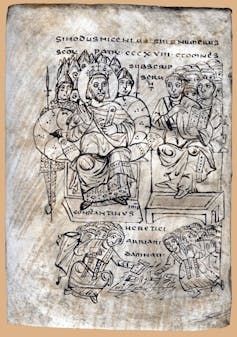 SINODUS NICENUS
SCOR PATR CCCXVIII ETOMNES
SUBSCRIP
SERUT
CONSTANTINUS
IMP
HERETICI
ARRIANI
DAMNATI